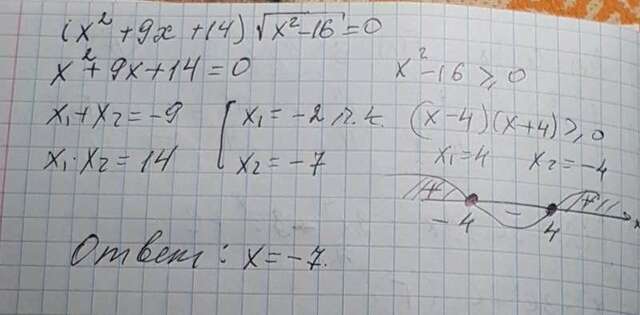 (x² + 9x + 14) √x²-16 = 0
x² + 9x + 14 = 0
x² - 16 ⩾ 0
x₁ + x₂ = -9
x₁ = -2 п.к.
(x-4)(x+4) ⩾ 0
x₁ · x₂ = 14
x₂ = -7
x₁ = 4 x₂ = -4
+ - +
-4 4 x
Ответ: x = -7.